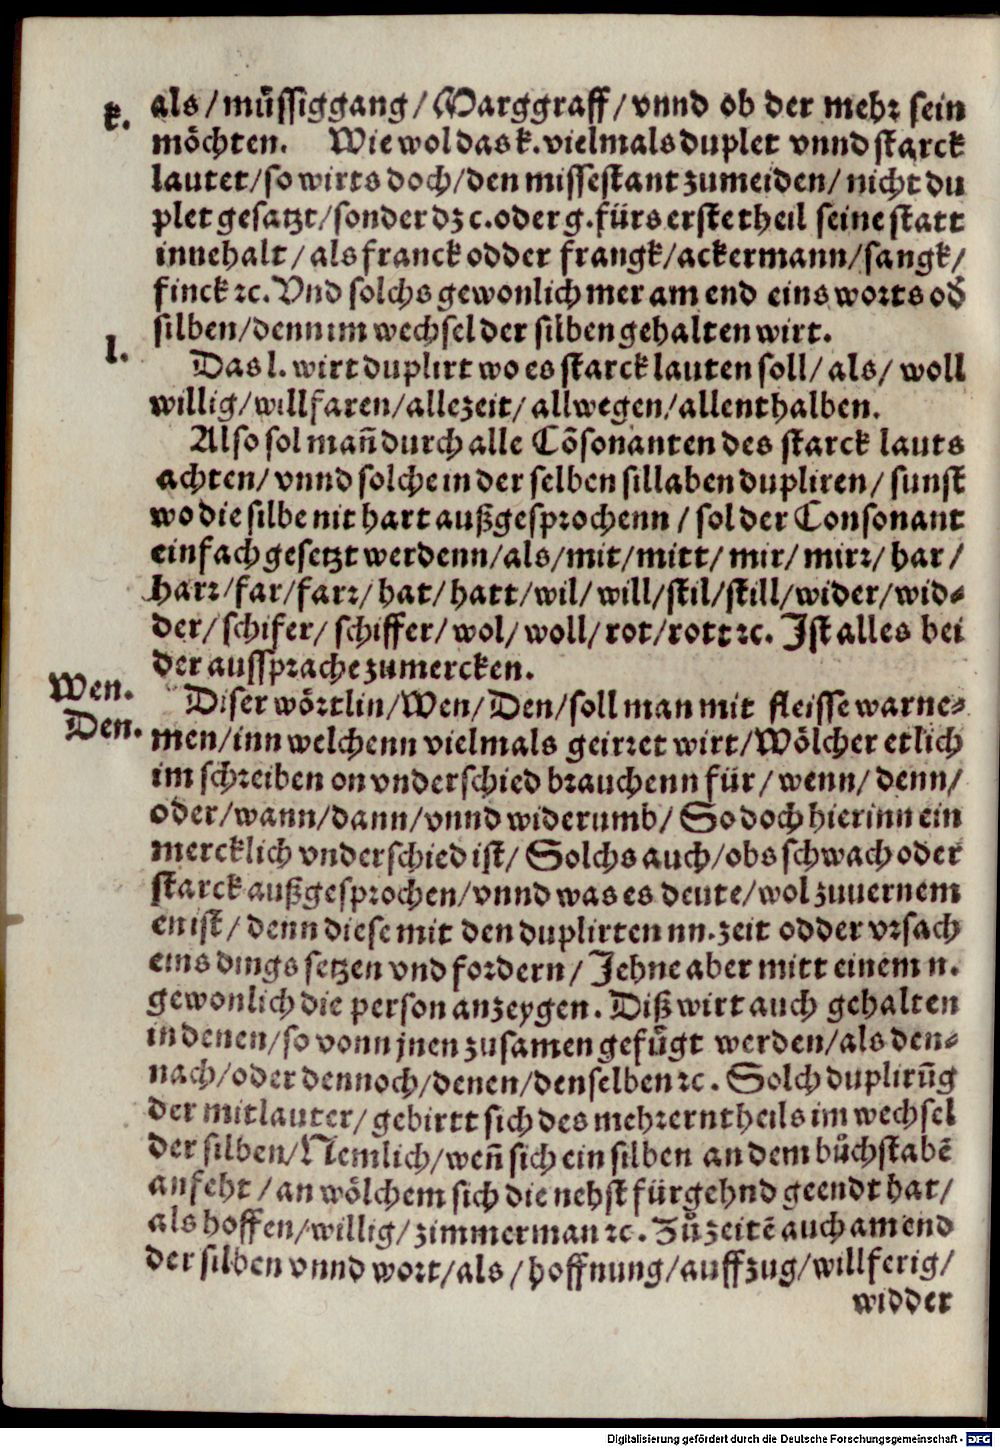 k. als / můssiggang / Marggraff / vnnd ob der mehr sein
möchten. Wie wol das k. vielmals duplet vnnd starck
lautet / so wirts doch / den missestant zumeiden / nicht du
plet gesatzt / sonder dz c. oder g. fürs erste theil seine statt
innehalt / als franck odder frangk / ackermann / sangk /
finck ꝛc. Vnd solchs gewonlich mer am end eins worts oď
silben / denn im wechsel der silben gehalten wirt.
l. Das l. wirt duplirt wo es starck lauten soll / als / woll
willig / willfaren / allezeit / allwegen / allenthalben.
Also sol mañ durch alle Cõsonanten des starck lauts
achten / vnnd solche in der selben sillaben dupliren / sunst
wo die silbe nit hart außgesprochenn / sol der Consonant
einfach gesetzt werdenn / als / mit / mitt / mir / mirr / har /
harr / far / farr / hat / hatt / wil / will / stil / still / wider / wid⸗
der / schifer / schiffer / wol / woll / rot / rott ꝛc. Ist alles bei
der aussprache zumercken.
Wen. Diser wörtlin / Wen / Den / soll man mit fleisse warne⸗
Den. men / inn welchenn vielmals geirret wirt / Wölcher etlich
im schreiben on vnderschied brauchenn für / wenn / denn /
oder / wann / dann / vnnd widerumb / So doch hierinn ein
mercklich vnderschied ist / Solchs auch / obs schwach oder
starck außgesprochen / vnnd was es deute / wol zuuernem
en ist / denn diese mit den duplirten nn. zeit odder vrsach
eins dings setzen vnd fordern / Jehne aber mitt einem n.
gewonlich die person anzeygen. Diß wirt auch gehalten
in denen / so vonn jnen zusamen gefůgt werden / als den⸗
nach / oder dennoch / denen / denselben ꝛc. Solch duplirũg
der mitlauter / gebirtt sich des mehrerntheils im wechsel
der silben / Nemlich / weñ sich ein silben an dem bůchstabẽ
anfeht / an wölchem sich die nehst fürgehnd geendt hat /
als hoffen / willig / zimmerman ꝛc. Zů zeitẽ auch am end
der silben vnnd wort / als / hoffnung / auffzug / willferig /
widder
Digitalisierung gefördert durch die Deutsche Forschungsgemeinschaft - DFG